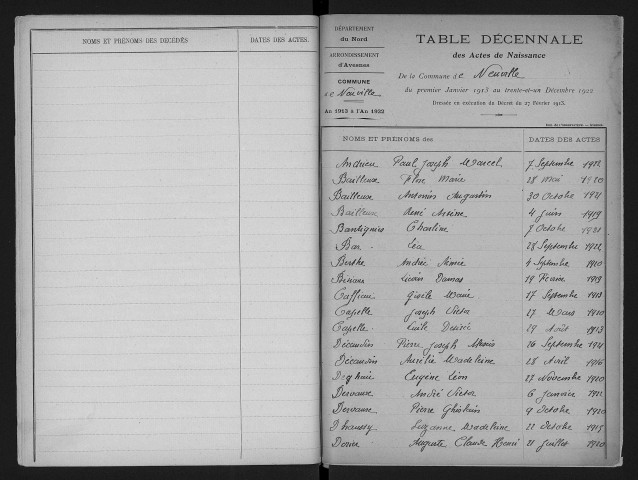 NOMS ET PRÉNOMS DES DÉCÉDÉS DATES DES ACTES.
DÉPARTEMENT
du Nord
ARRONDISSEMENT
d'Avesnes
COMMUNE
de Neuville
An 1913 à l'An 1922
TABLE DÉCENNALE
des Actes de Naissance
De la Commune de Neuville
du premier Janvier 1913 au trente-et-un Décembre 1922
Dressée en exécution du Décret du 27 Février 1913.
NOMS ET PRÉNOMS des DATES DES ACTES
Andrieu Paul Joseph Marcel 7 Septembre 1922
Bailleux Flore Marie 28 Mai 1920
Bailleux Antonin Augustin 30 Octobre 1921
Bailleux René Arsène 4 Juin 1919
Bantignies Charline 7 Octobre 1921
Bar Léa 28 Septembre 1922
Berthe Andrée 4 Septembre 1920
Damas 19 Février 1919
Caffiaux Gisèle Marie 17 Septembre 1913
Capelle Joseph Victor 27 Mars 1910
Capelle Désiré 29 Août 1913
Décaudin Pierre Joseph 26 Septembre 1921
Décaudin Aurélie Madeleine 28 Avril 1916
Eugène Léon 27 Novembre 1920
Dervaux André Victor 6 Janvier 1922
Dervaux Pierre Ghislain 9 Octobre 1920
Dhaussy Suzanne Madeleine 22 Octobre 1913
Auguste Claude Henri 21 Juillet 1920